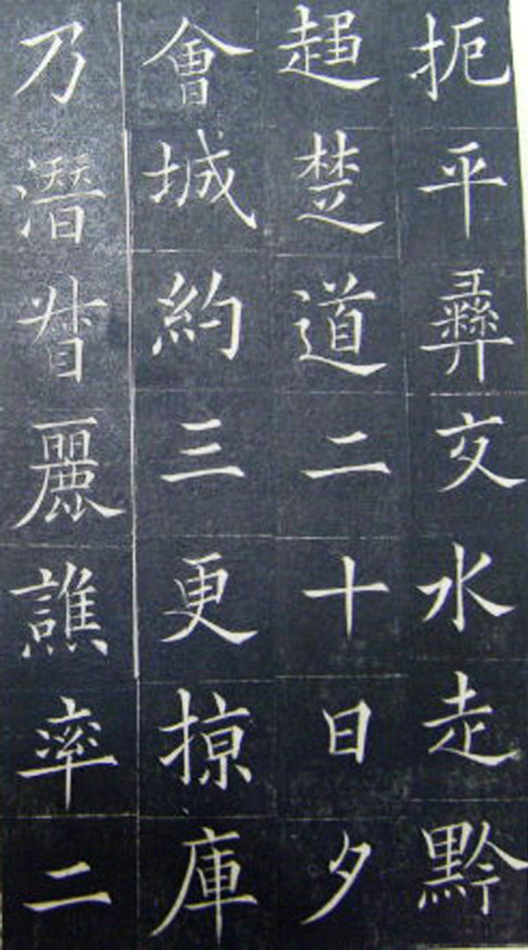 扼平彝交水走黔
趨楚道二十日夕
會城約三更掠庫
乃潛麗譙率二